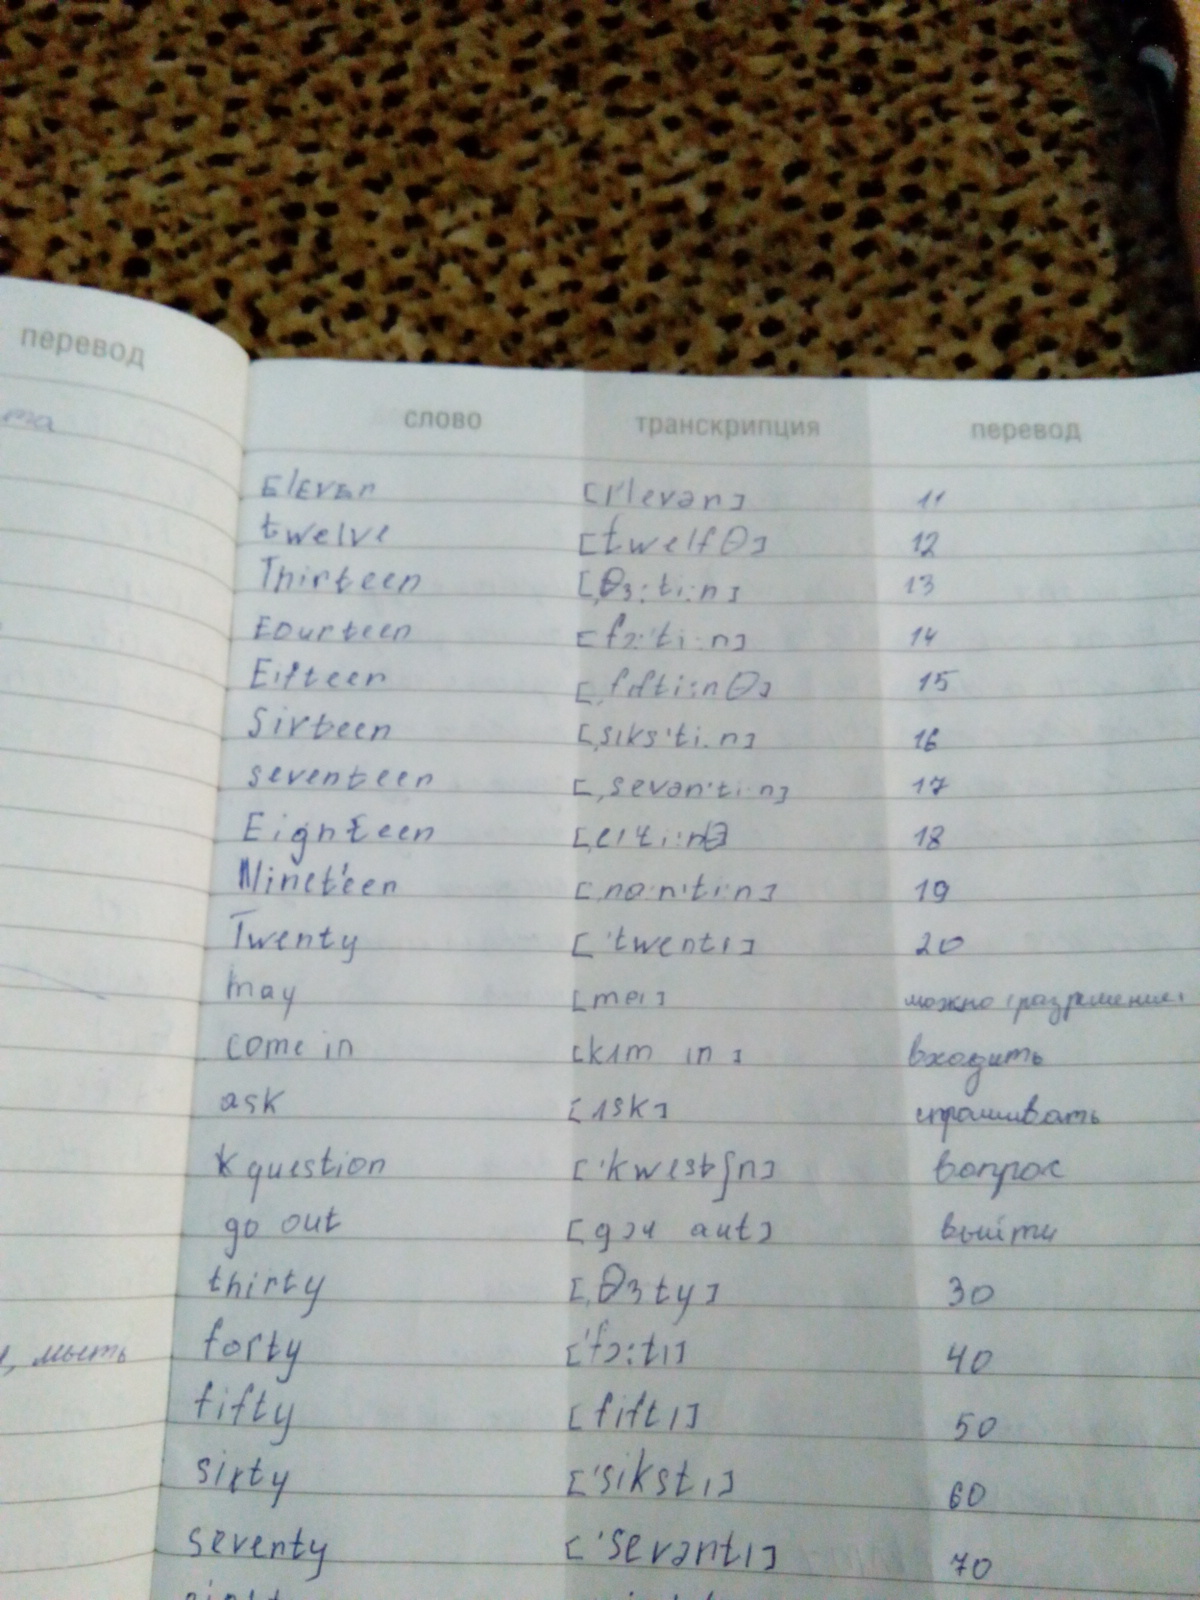 перевод
та
слово транскрипция перевод
Eleven [ı'levən] 11
twelve [twelfθ] 12
Thirteen [ˌθɜ:ti:n] 13
Fourteen [fɔ:'ti:n] 14
Fifteen [ˌfıfti:nθ] 15
Sixteen [ˌsıks'ti:n] 16
seventeen [ˌsevən'ti:n] 17
Eighteen [ˌeı'ti:n] 18
Nineteen [ˌnaın'ti:n] 19
Twenty ['twentı] 20
may [meı] можно (разрешение)
come in [kʌm ın] входить
ask [ʌsk] спрашивать
question ['kwestʃn] вопрос
go out [gɔu aut] выйти
thirty [ˌθɜty] 30
forty ['fɔ:tı] 40
, мыть
fifty [fiftı] 50
sixty ['sikstı] 60
seventy ['sevəntı] 70